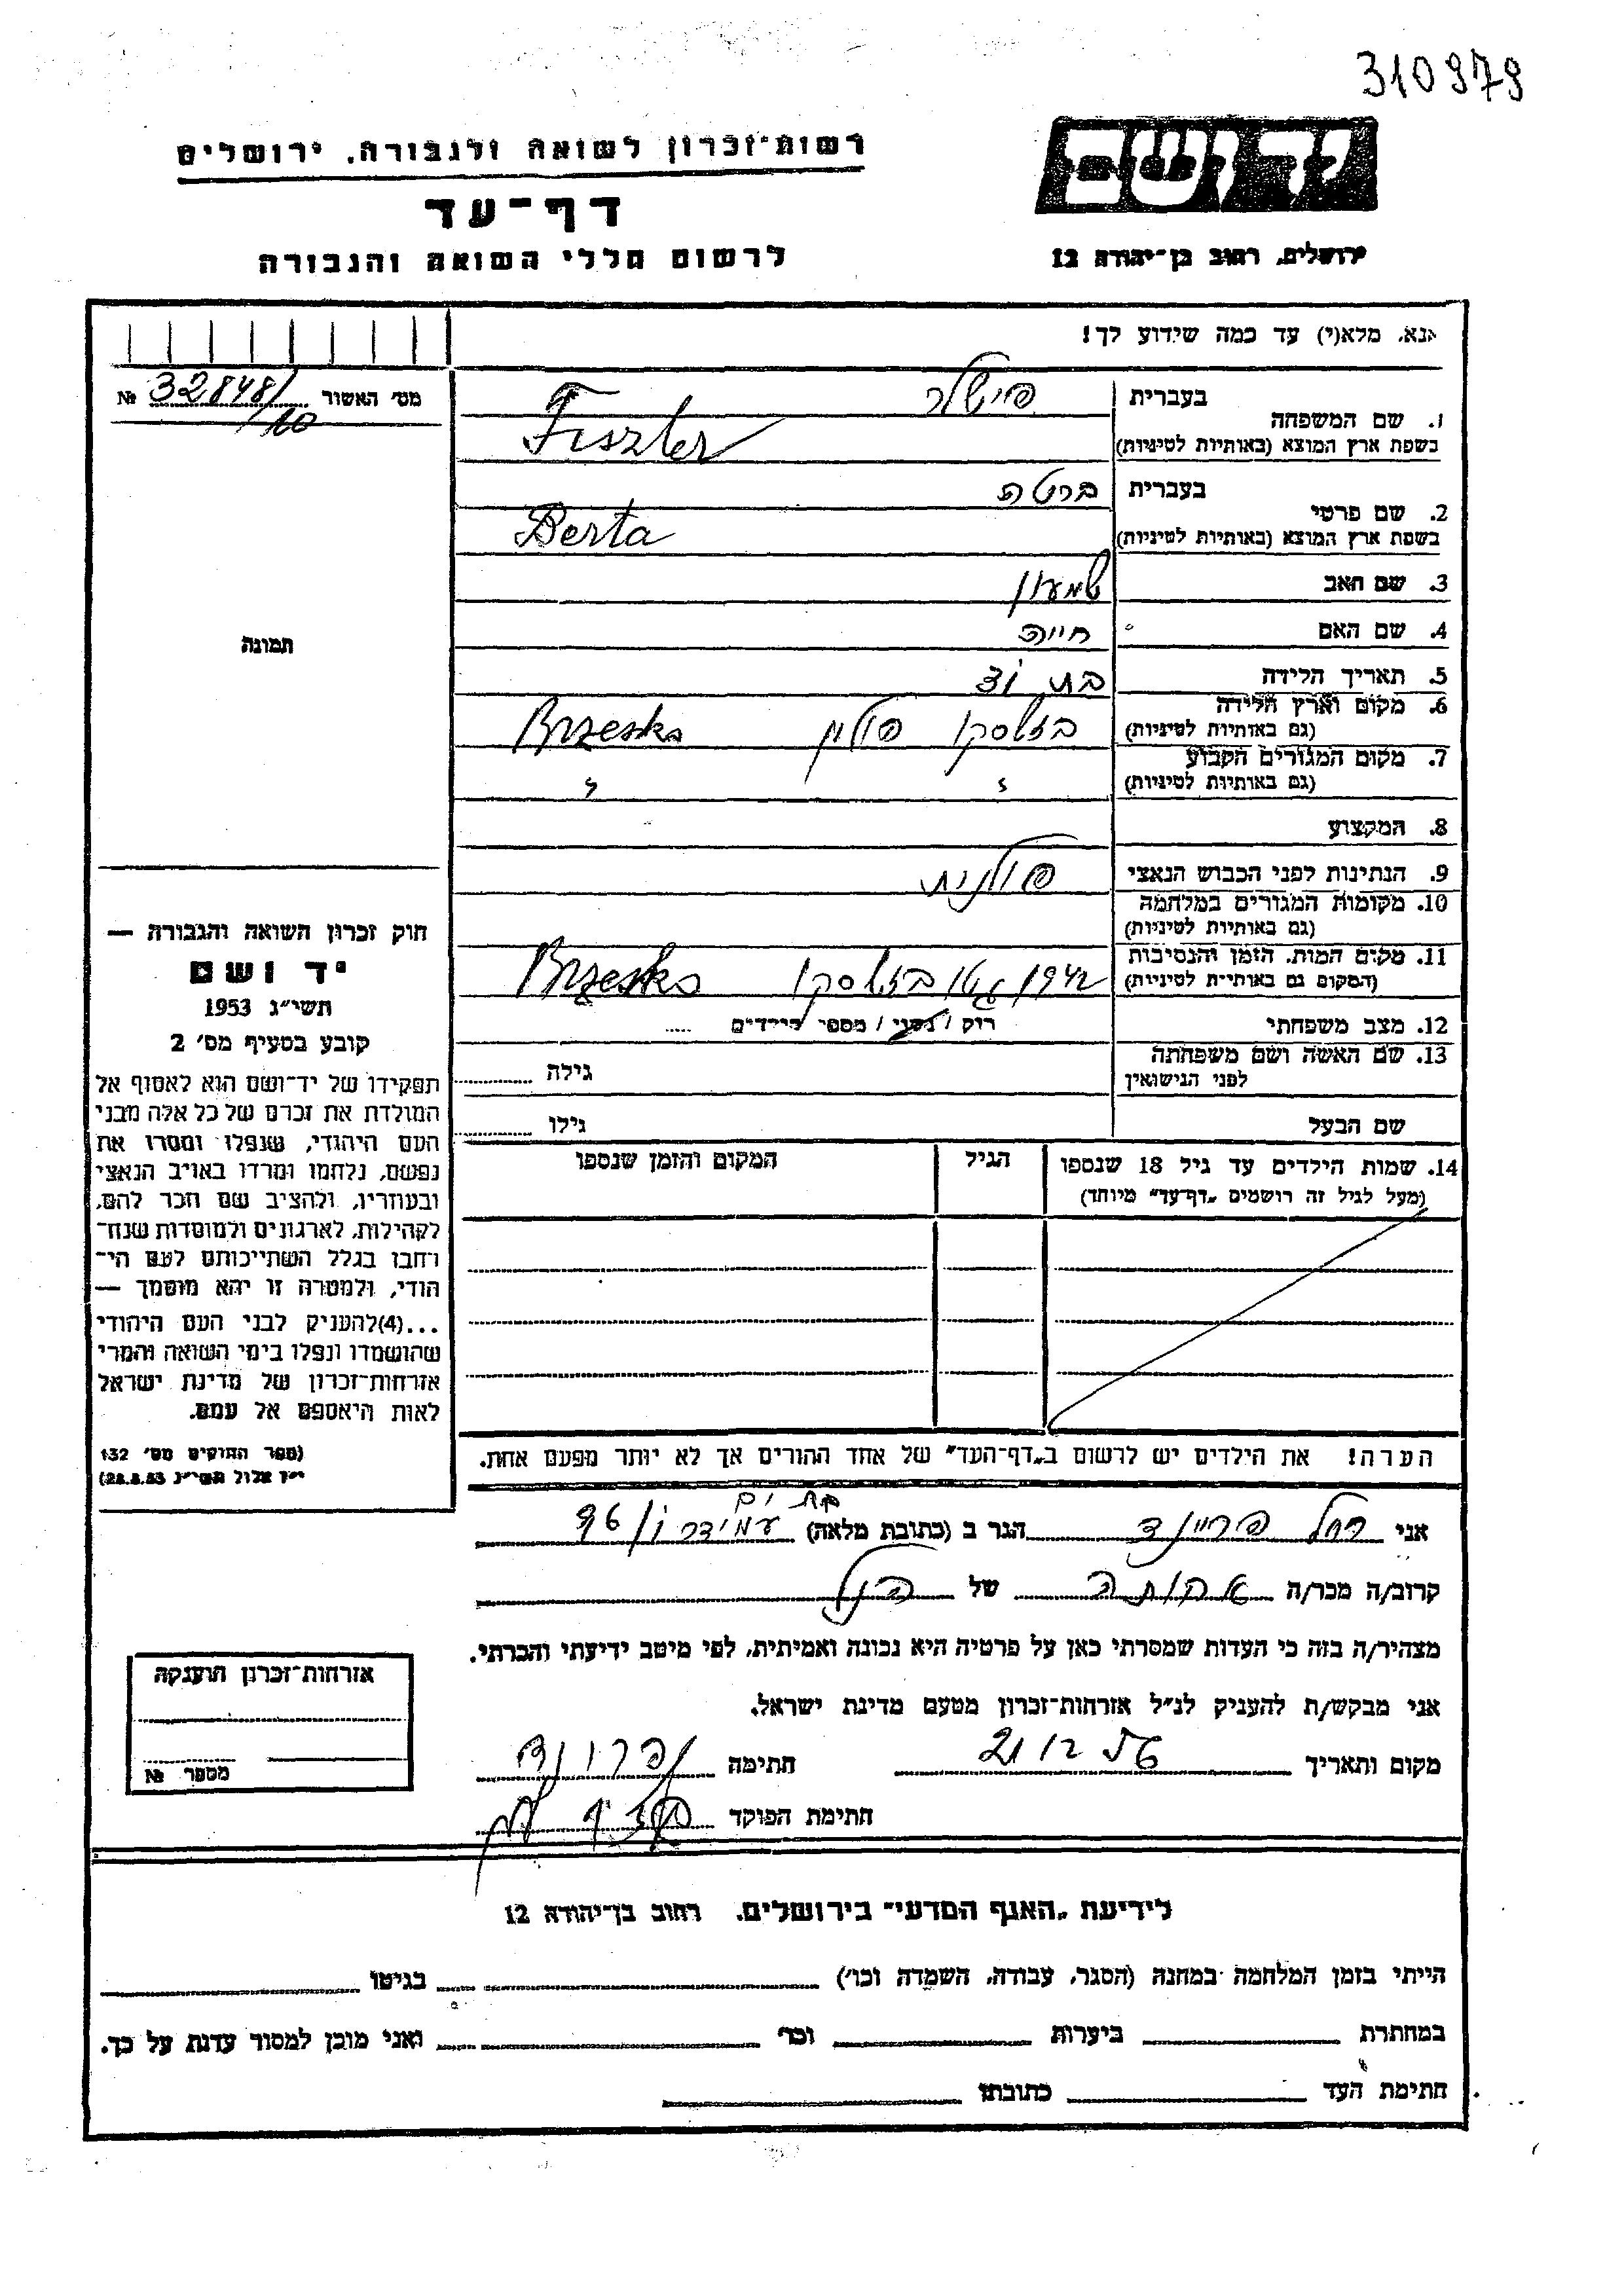 310979
יד ושם
רשות־זכרון לשואה ולגבורה, ירושלים
דף־עד
לרשום חללי השואה והגבורה
ירושלים, רחוב בן־יהודה 12
נא, מלא(י) עד כמה שידוע לך!
מס׳ האשור 32848/10 №
1. שם המשפחה
בעברית פישלר
בשפת ארץ המוצא (באותיות לטיניות) Fiszler
2. שם פרטי
בעברית ברטה
בשפת ארץ המוצא (באותיות לטיניות) Berta
3. שם האב שמעון
4. שם האם חייה
5. תאריך הלידה בת
6. מקום וארץ הלידה (גם באותיות לטיניות) פולין Brzesko
7. מקום המגורים הקבוע (גם באותיות לטיניות)
8. המקצוע
9. הנתינות לפני הכבוש הנאצי פולנית
10. מקומות המגורים במלחמה (גם באותיות לטיניות)
11. מקום המות, הזמן והנסיבות (המקום גם באותיות לטיניות) 1942 Brzesko
12. מצב משפחתי רוק / נשוי / מספר הילדים .....
13. שם האשה ושם משפחתה לפני הנישואין גילה
שם הבעל גילו
14. שמות הילדים עד גיל 18 שנספו
(מעל לגיל זה רושמים „דף־עד” מיוחד)
הגיל
המקום והזמן שנספו
תמונה
חוק זכרון השואה והגבורה —
יד ושם
תשי״ג 1953
קובע בסעיף מס׳ 2
תפקידו של יד־ושם הוא לאסוף אל
המולדת את זכרם של כל אלה מבני
העם היהודי, שנפלו ומסרו את
נפשם, נלחמו ומרדו באויב הנאצי
ובעוזריו, ולהציב שם וזכר להם,
לקהילות, לארגונים ולמוסדות שנח־
רבו בגלל השתייכותם לעם הי־
הודי, ולמטרה זו יהא מוסמך —
...(4)להעניק לבני העם היהודי
שהושמדו ונפלו בימי השואה והמרי
אזרחות־זכרון של מדינת ישראל
לאות היאספם אל עמם.
(ספר החוקים מס׳ 132
י״ז אלול תשי״ג 28.8.53)
הערה! את הילדים יש לרשום ב„דף־העד” של אחד ההורים אך לא יותר מפעם אחת.
בת ים
אני רחל פריינד הגר ב (כתובת מלאה) עמידר
קרוב/ה מכר/ה אחותה של הנ״ל
מצהיר/ה בזה כי העדות שמסרתי כאן על פרטיה היא נכונה ואמיתית, לפי מיטב ידיעתי והכרתי.
אני מבקש/ת להעניק לנ״ל אזרחות־זכרון מטעם מדינת ישראל.
מקום ותאריך חתימה
חתימת הפוקד
אזרחות־זכרון הוענקה
מספר №
לידיעת „האגף המדעי” בירושלים, רחוב בן־יהודה 12
הייתי בזמן המלחמה במחנה (הסגר, עבודה, השמדה וכו׳) בגיטו
במחתרת ביערות וכו׳ ואני מוכן למסור עדות על כך.
חתימת העד כתובתו